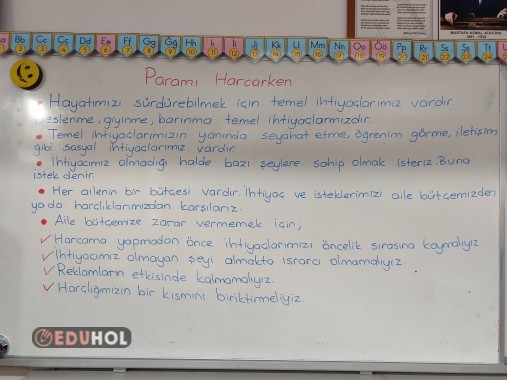 Bb Cc Çç Dd Ee Ff Gg Ğğ Hh Iı İi Jj Kk Ll Mm Nn Oo Öö Pp Rr Ss Şş Tt
MUSTAFA KEMAL ATATÜRK
1881 - 1938
Paramı Harcarken
• Hayatımızı sürdürebilmek için temel ihtiyaçlarımız vardır.
Beslenme, giyinme, barınma temel ihtiyaçlarımızdır.
• Temel ihtiyaçlarımızın yanında seyahat etme, öğrenim görme, iletişim
gibi sosyal ihtiyaçlarımız vardır.
• İhtiyacımız olmadığı halde bazı şeylere sahip olmak isteriz. Buna
istek denir.
• Her ailenin bir bütçesi vardır. İhtiyaç ve isteklerimizi aile bütçemizden
ya da harçlıklarımızdan karşılarız.
• Aile bütçemize zarar vermemek için,
✓ Harcama yapmadan önce ihtiyaçlarımızı öncelik sırasına koymalıyız.
✓ İhtiyacımız olmayan şeyi almakta ısrarcı olmamalıyız.
✓ Reklamların etkisinde kalmamalıyız.
✓ Harçlığımızın bir kısmını biriktirmeliyiz.
EDUHOL